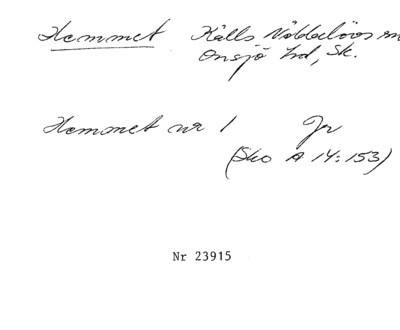 Hemmet Källs Nöbbelövs sn
Onsjö hd, Sk.
Hemmet nr 1 Jr
(Sko A 14:153)
Nr 23915